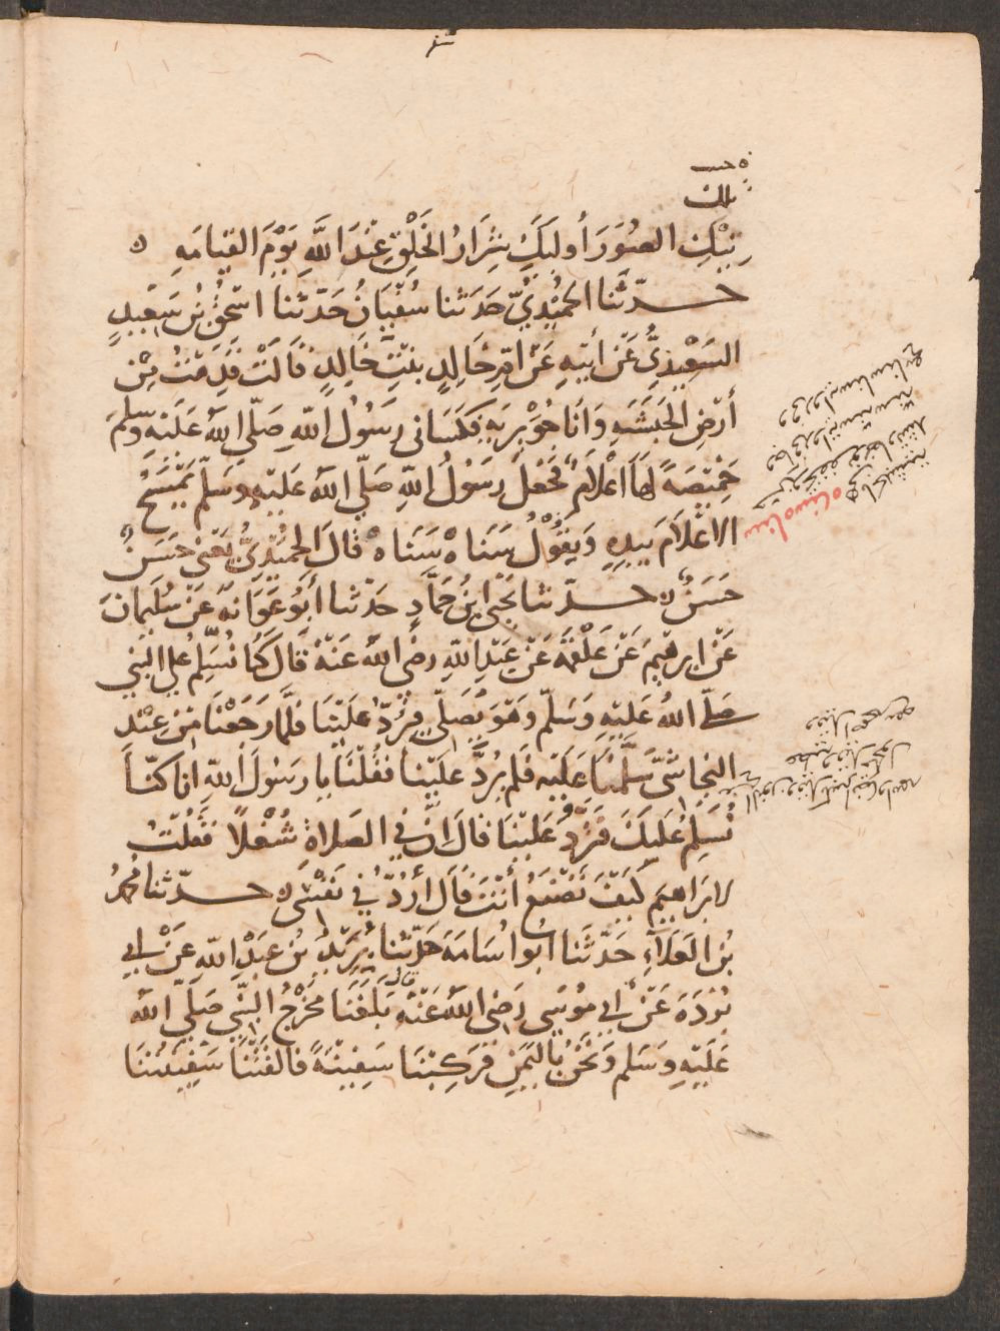 تلك
تِيْكَ الصُّوَرَ أُولَئِكَ شِرَارُ الْخَلْقِ عِنْدَ اللَّهِ يَوْمَ الْقِيَامَةِ ه
حدّثنا الحُمَيْدِيُّ حَدَّثنا سُفْيَانُ حَدّثنا اسْحٰقُ بْنُ سَعِيدٍ
السَّعِيْدِيُّ عَنْ أَبِيهِ عَنْ أُمِّ خَالِدٍ بِنْتِ خَالِدٍ قَالَتْ قَدِمْتُ مِنْ
أَرْضِ الْحَبَشَةِ وَأَنَا جُوَيْرِيَةٌ فَكَسَانِي رَسُولُ اللَّهِ صَلَّى اللَّهُ عَلَيْهِ وَسَلَّمَ
خَمِيْصَةً لَهَا اعْلَامٌ فَجَعَلَ رَسُولُ اللَّهِ صَلَّى اللَّهُ عَلَيْهِ وَسَلَّمَ يَمْسَحُ
الاعْلَامَ بِيَدِهِ وَيَقُوْلُ سَنَاهْ سَنَاهْ قَالَ الْحُمَيْدِيُّ يَعْنِي حَسَنٌ
حَسَنٌ ه حدّثنا يَحْيَى ابْنُ حَمَّادٍ حَدّثنا أَبُو عَوَانَةَ عَنْ سُلَيمَانَ
عَنْ ابرهيمَ عَنْ عَلْقَمَةَ عَنْ عَبْدِ اللَّهِ رَضِيَ اللَّهُ عَنْهُ قَالَ كُنَّا نُسَلِّمُ عَلَى النَّبِي
صَلَّى اللهُ عَلَيْهِ وَسَلَّم وَهُوَ يُصَلِّي فَيَرُدُّ عَلَيْنَا فَلَمَّا رَجَعْنَا مِنْ عِنْدِ
النجاشيّ سَلَّمْنَا عَلَيْهِ فَلَم يَرُدَّ عَلَيْنا فَقُلْنَا يا رَسُولَ اللَّهِ انا كنّا
نُسَلِّمُ عَلَيكَ فَتَرُدُّ عَلَيْنَا قَالَ انّ في الصَلاةِ شُغْلًا فَقُلْتُ
لابرَاهِيمَ كَيْفَ تَصْنَعُ أَنْتَ قَالَ أَرُدُّ فِي نَفْسِي ه حدّثنا مُحَمَّدُ
بْنُ العَلَاءِ حَدّثَنا ابُو اُسَامَةَ حَدَّثنا بُرَيْدُ بْنُ عَبْدِ اللّهِ عَنْ ابي
بُرْدَةَ عَنْ ابي مُوْسَى رَضِيَ اللَّهُ عَنْهُ قال بَلَغَنَا مَخْرَجُ النَّبِيِّ صَلَّى اللَّهُ
عَلَيْهِ وَسَلَم وَنَحْنُ بِالْيَمَنِ فَرَكِبْنَا سَفِيْنَةً فَالْقَتْنَا سَفِيْنَتُنَا
سناه سناه